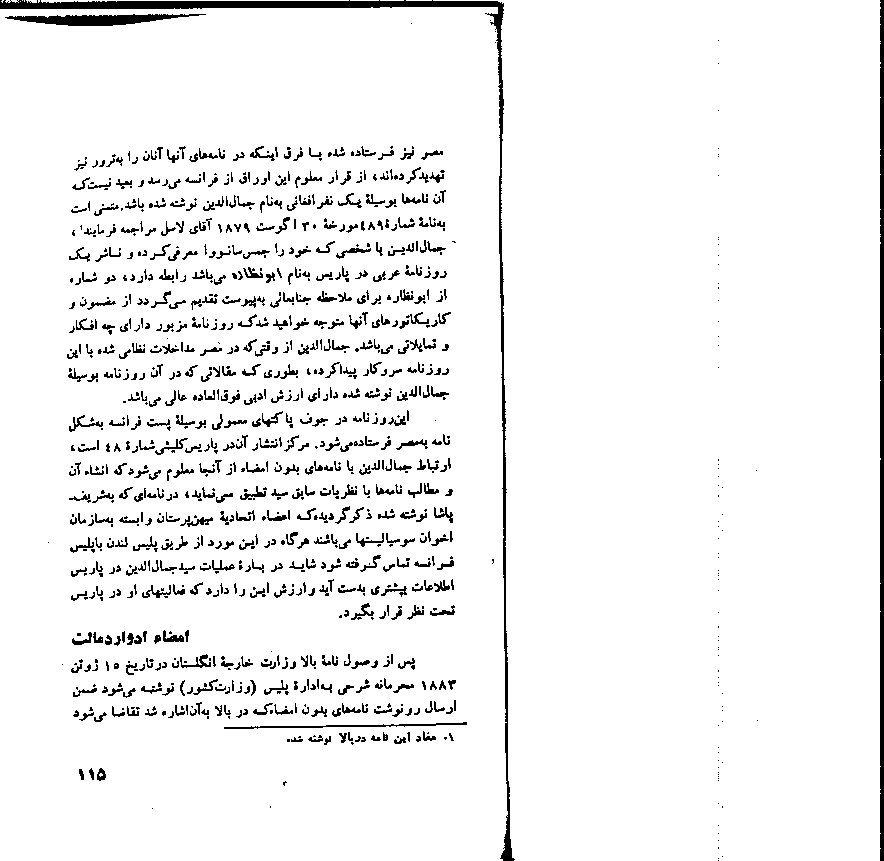 مصر نیز فرستاده شده با فرق اینکه در نامه‌های آنها آنان را به‌ترور نیز
تهدیدکرده‌اند، از قرار معلوم این اوراق از فرانسه می‌رسد و بعید نیست‌که
آن نامه‌ها بوسیلهٔ یک نفرافغانی به‌نام جمال‌الدین نوشته شده باشد، متمنی است
به‌نامهٔ شمارهٔ ۴۸۹ مورخهٔ ۳۰ اگوست ۱۸۷۹ آقای لاسل مراجعه فرمایند۱،
جمال‌الدین با شخصی‌که خود را جمس‌سانووا معرفی‌کرده و ناشر یک
روزنامهٔ عربی در پاریس به‌نام ابونظاره می‌باشد رابطه دارد، دو شماره
از ابونظاره برای ملاحظه جنابعالی به‌پیوست تقدیم می‌گردد از مضمون و
کاریکاتورهای آنها متوجه خواهید شدکه روزنامهٔ مزبور دارای چه افکار
و تمایلاتی می‌باشد. جمال‌الدین از وقتی‌که در مصر مداخلات نظامی شده با این
روزنامه سروکار پیداکرده، بطوری که مقالاتی که در آن روزنامه بوسیلهٔ
جمال‌الدین نوشته شده دارای ارزش ادبی فوق‌العاده عالی می‌باشد.
این‌روزنامه در جوف پاکتهای معمولی بوسیلهٔ پست فرانسه به‌شکل
نامه به‌مصر فرستاده‌می‌شود. مرکز انتشار آن‌در پاریس‌کلیشی‌شمارهٔ ۴۸ است،
ارتباط جمال‌الدین با نامه‌های بدون امضاء از آنجا معلوم می‌شودکه انشاء آن
و مطالب نامه‌ها با نظریات سابق سید تطبیق می‌نماید، درنامه‌ای که به‌شریف‌ـ
پاشا نوشته شده ذکرگردیده‌که اعضاء اتحادیهٔ میهن‌پرستان وابسته به‌سازمان
اخوان سوسیالیستها می‌باشند هرگاه در این مورد از طریق پلیس لندن باپلیس
فرانسه تماس گرفته شود شاید در بارهٔ عملیات سیدجمال‌الدین در پاریس
اطلاعات بیشتری بدست آید وارزش این را دارد که فعالیتهای او در پاریس
تحت نظر قرار بگیرد.
امضاء ادواردمالت
پس از وصول نامهٔ بالا وزارت خارجهٔ انگلستان درتاریخ ۱۵ ژوئن
۱۸۸۳ محرمانه شرحی به‌ادارهٔ پلیس (وزارت‌کشور) نوشته می‌شود ضمن
ارسال رونوشت نامه‌های بدون امضاءکه در بالا به‌آن‌اشاره شد تقاضا می‌شود
۱. مفاد این نامه دربالا نوشته شد.
۱۱۵